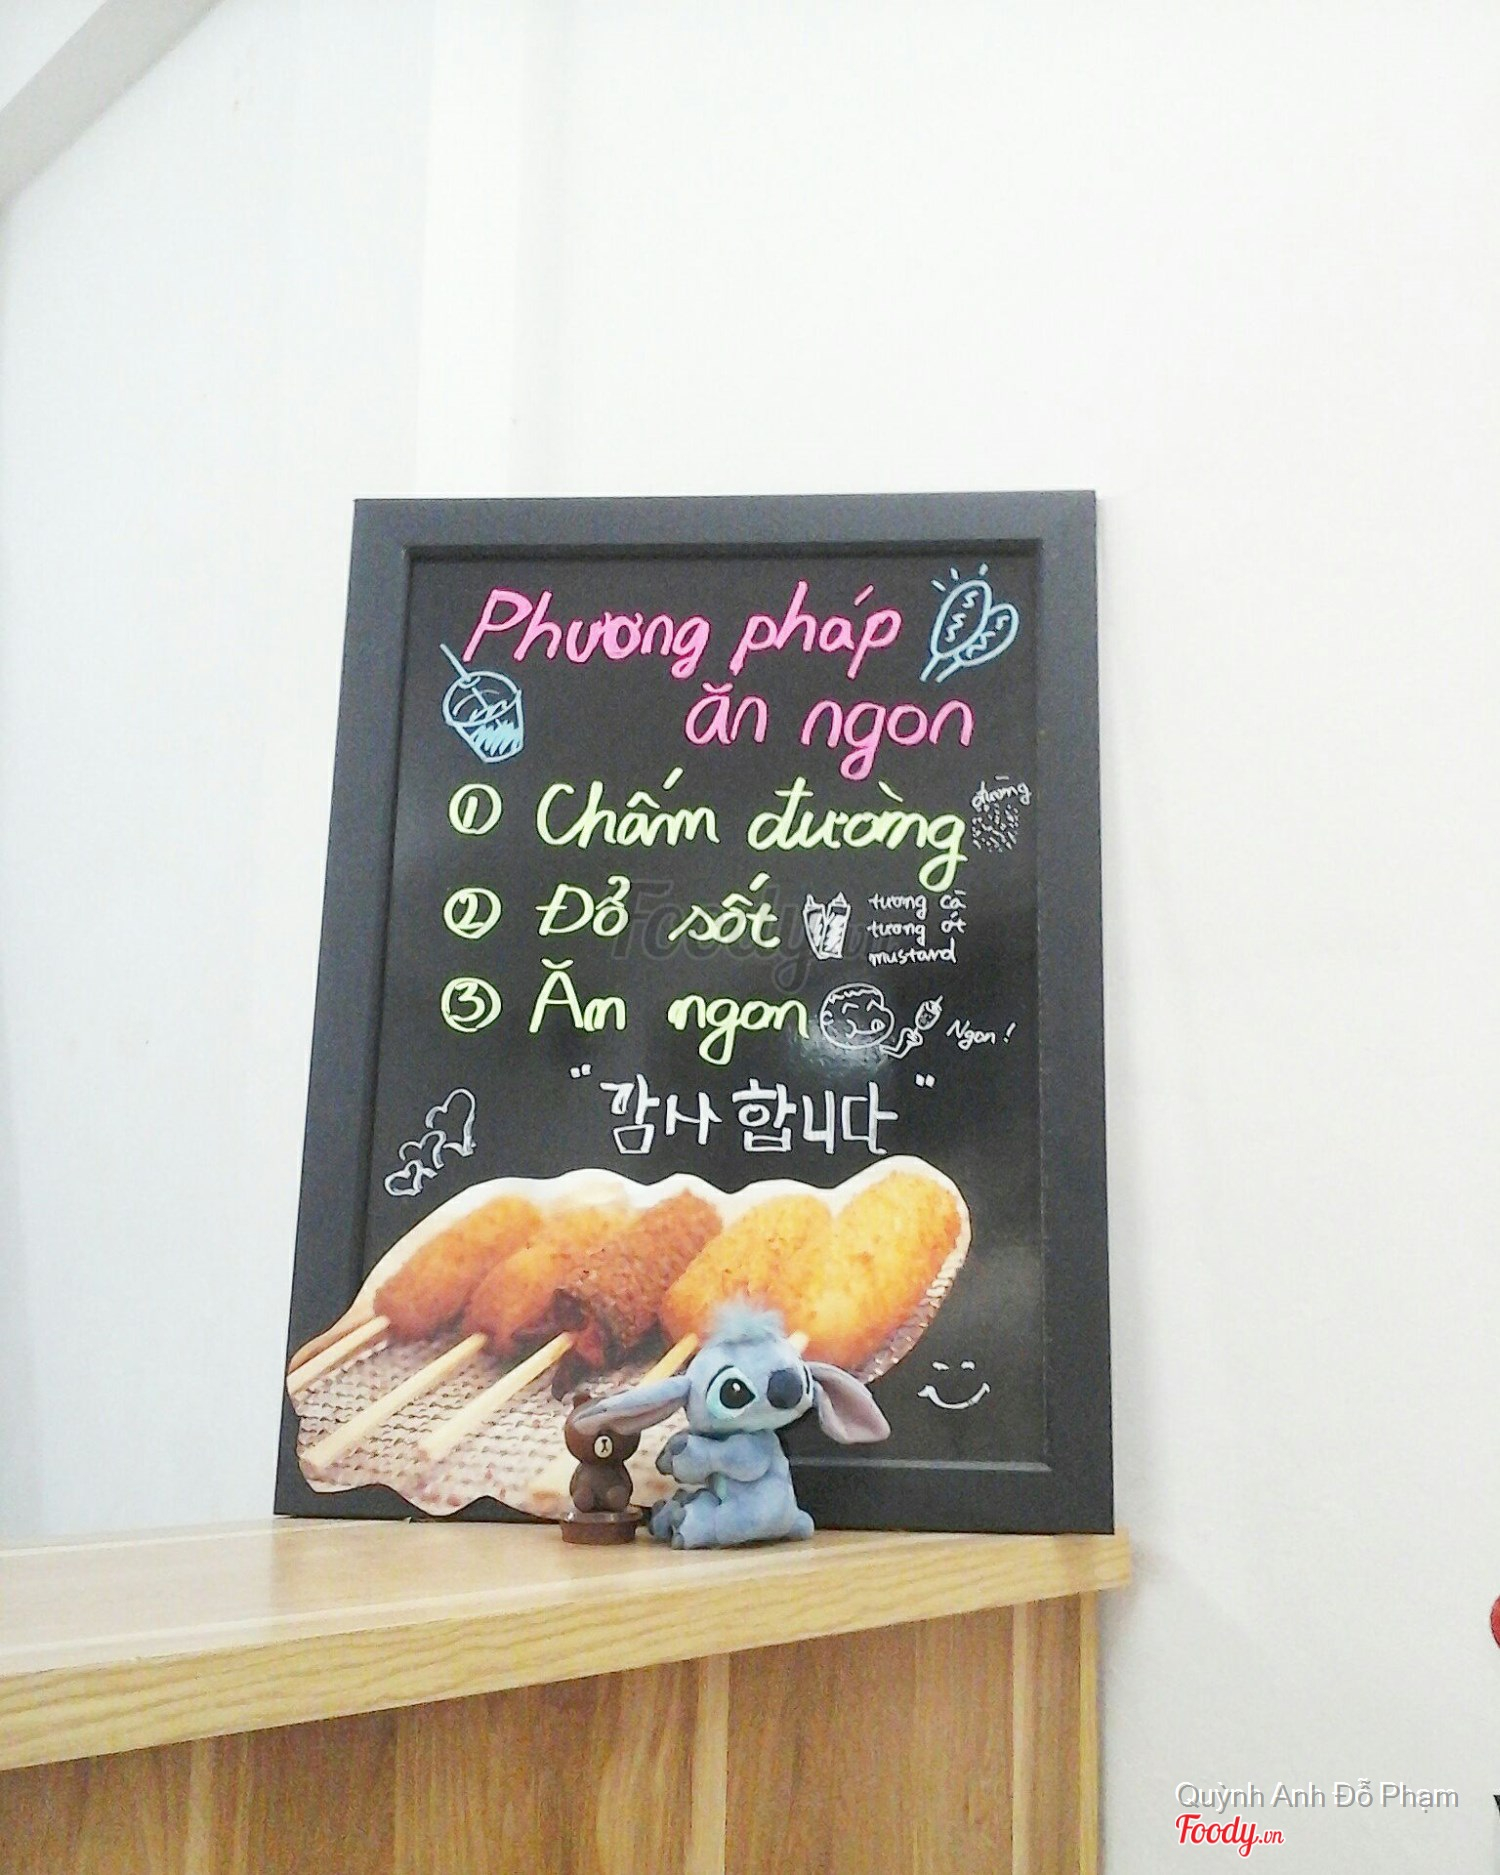 Phương pháp
ăn ngon
① Chấm đường
đường
② Đổ sốt
tương cà
tương ớt
mustard
③ Ăn ngon
Ngon!
"감사합니다"
Foody.vn
Quỳnh Anh Đỗ Phạm
Foody.vn